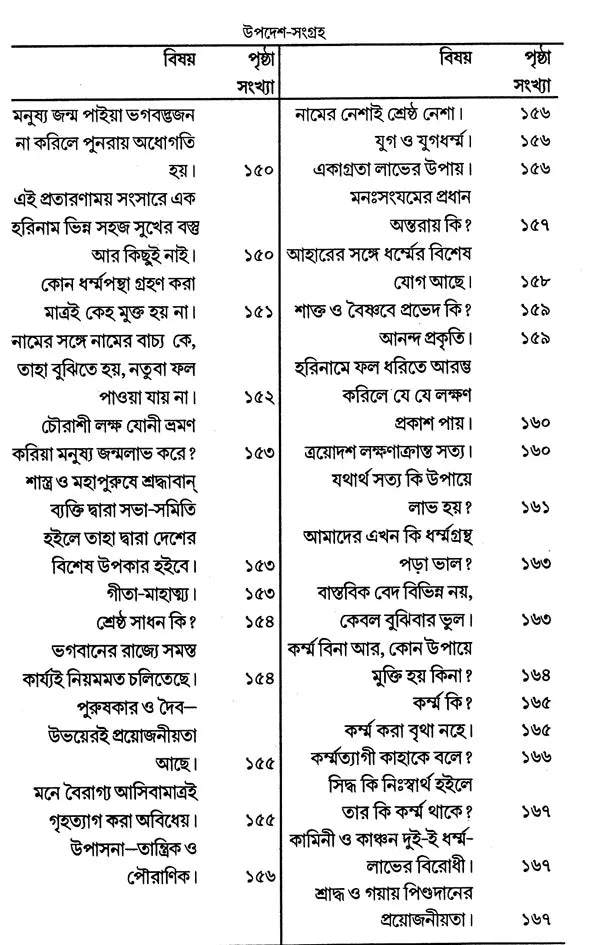 উপদেশ-সংগ্রহ
বিষয় পৃষ্ঠা
সংখ্যা
মনুষ্য জন্ম পাইয়া ভগবদ্ভজন
না করিলে পুনরায় অধোগতি
হয়। ১৫০
এই প্রতারণাময় সংসারে এক
হরিনাম ভিন্ন সহজ সুখের বস্তু
আর কিছুই নাই। ১৫০
কোন ধর্ম্মপন্থা গ্রহণ করা
মাত্রই কেহ মুক্ত হয় না। ১৫১
নামের সঙ্গে নামের বাচ্য কে,
তাহা বুঝিতে হয়, নতুবা ফল
পাওয়া যায় না। ১৫২
চৌরাশী লক্ষ যোনী ভ্রমণ
করিয়া মনুষ্য জন্মলাভ করে? ১৫৩
শাস্ত্র ও মহাপুরুষে শ্রদ্ধাবান্
ব্যক্তি দ্বারা সভা-সমিতি
হইলে তাহা দ্বারা দেশের
বিশেষ উপকার হইবে। ১৫৩
গীতা-মাহাত্ম্য। ১৫৩
শ্রেষ্ঠ সাধন কি? ১৫৪
ভগবানের রাজ্যে সমস্ত
কার্য্যই নিয়মমত চলিতেছে। ১৫৪
পুরুষকার ও দৈব—
উভয়েরই প্রয়োজনীয়তা
আছে। ১৫৫
মনে বৈরাগ্য আসিবামাত্রই
গৃহত্যাগ করা অবিধেয়। ১৫৫
উপাসনা—তান্ত্রিক ও
পৌরাণিক। ১৫৬
বিষয় পৃষ্ঠা
সংখ্যা
নামের নেশাই শ্রেষ্ঠ নেশা। ১৫৬
যুগ ও যুগধর্ম্ম। ১৫৬
একাগ্রতা লাভের উপায়। ১৫৬
মনঃসংযমের প্রধান
অন্তরায় কি? ১৫৭
আহারের সঙ্গে ধর্ম্মের বিশেষ
যোগ আছে। ১৫৮
শাক্ত ও বৈষ্ণবে প্রভেদ কি? ১৫৯
আনন্দ প্রকৃতি। ১৫৯
হরিনামে ফল ধরিতে আরম্ভ
করিলে যে যে লক্ষণ
প্রকাশ পায়। ১৬০
ত্রয়োদশ লক্ষণাক্রান্ত সত্য। ১৬০
যথার্থ সত্য কি উপায়ে
লাভ হয়? ১৬১
আমাদের এখন কি ধর্ম্মগ্রন্থ
পড়া ভাল? ১৬৩
বাস্তবিক বেদ বিভিন্ন নয়,
কেবল বুঝিবার ভুল। ১৬৩
কর্ম্ম বিনা আর, কোন উপায়ে
মুক্তি হয় কিনা? ১৬৪
কর্ম্ম কি? ১৬৫
কর্ম্ম করা বৃথা নহে। ১৬৫
কর্ম্মত্যাগী কাহাকে বলে? ১৬৬
সিদ্ধ কি নিঃস্বার্থ হইলে
তার কি কর্ম্ম থাকে? ১৬৭
কামিনী ও কাঞ্চন দুই-ই ধর্ম্ম-
লাভের বিরোধী। ১৬৭
শ্রাদ্ধ ও গয়ায় পিণ্ডদানের
প্রয়োজনীয়তা। ১৬৭